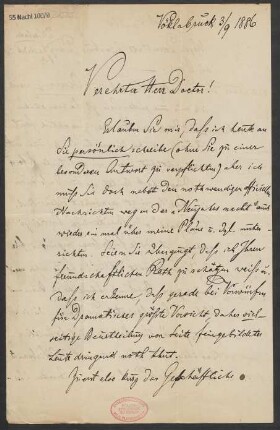 Vöklabruck 3/9 1886
Verehrter Herr Doctor!
Erlauben Sie mir, daß ich heute an
Sie persönlich schreibe (ohne Sie zu einer
besonderen Antwort zu verpflichten) aber ich
muß Sie doch nebst den nothwendigen officiellen
Nachrichten wegen der „Neujahrsnacht“ auch
wieder einmal über meine Pläne z. dgl. unter-
richten. Seien Sie überzeugt, daß ich Ihren
freundschaftlichen Rath zu schätzen weiß u.
daß ich erkenne, daß gerade bei Vorwürfen
für Dramatisches größte Vorsicht, daher viel-
seitige Beurtheilung von Seite feingebildeter
Leute dringend noth thut.
Zuerst also kurz das Geschäftliche.